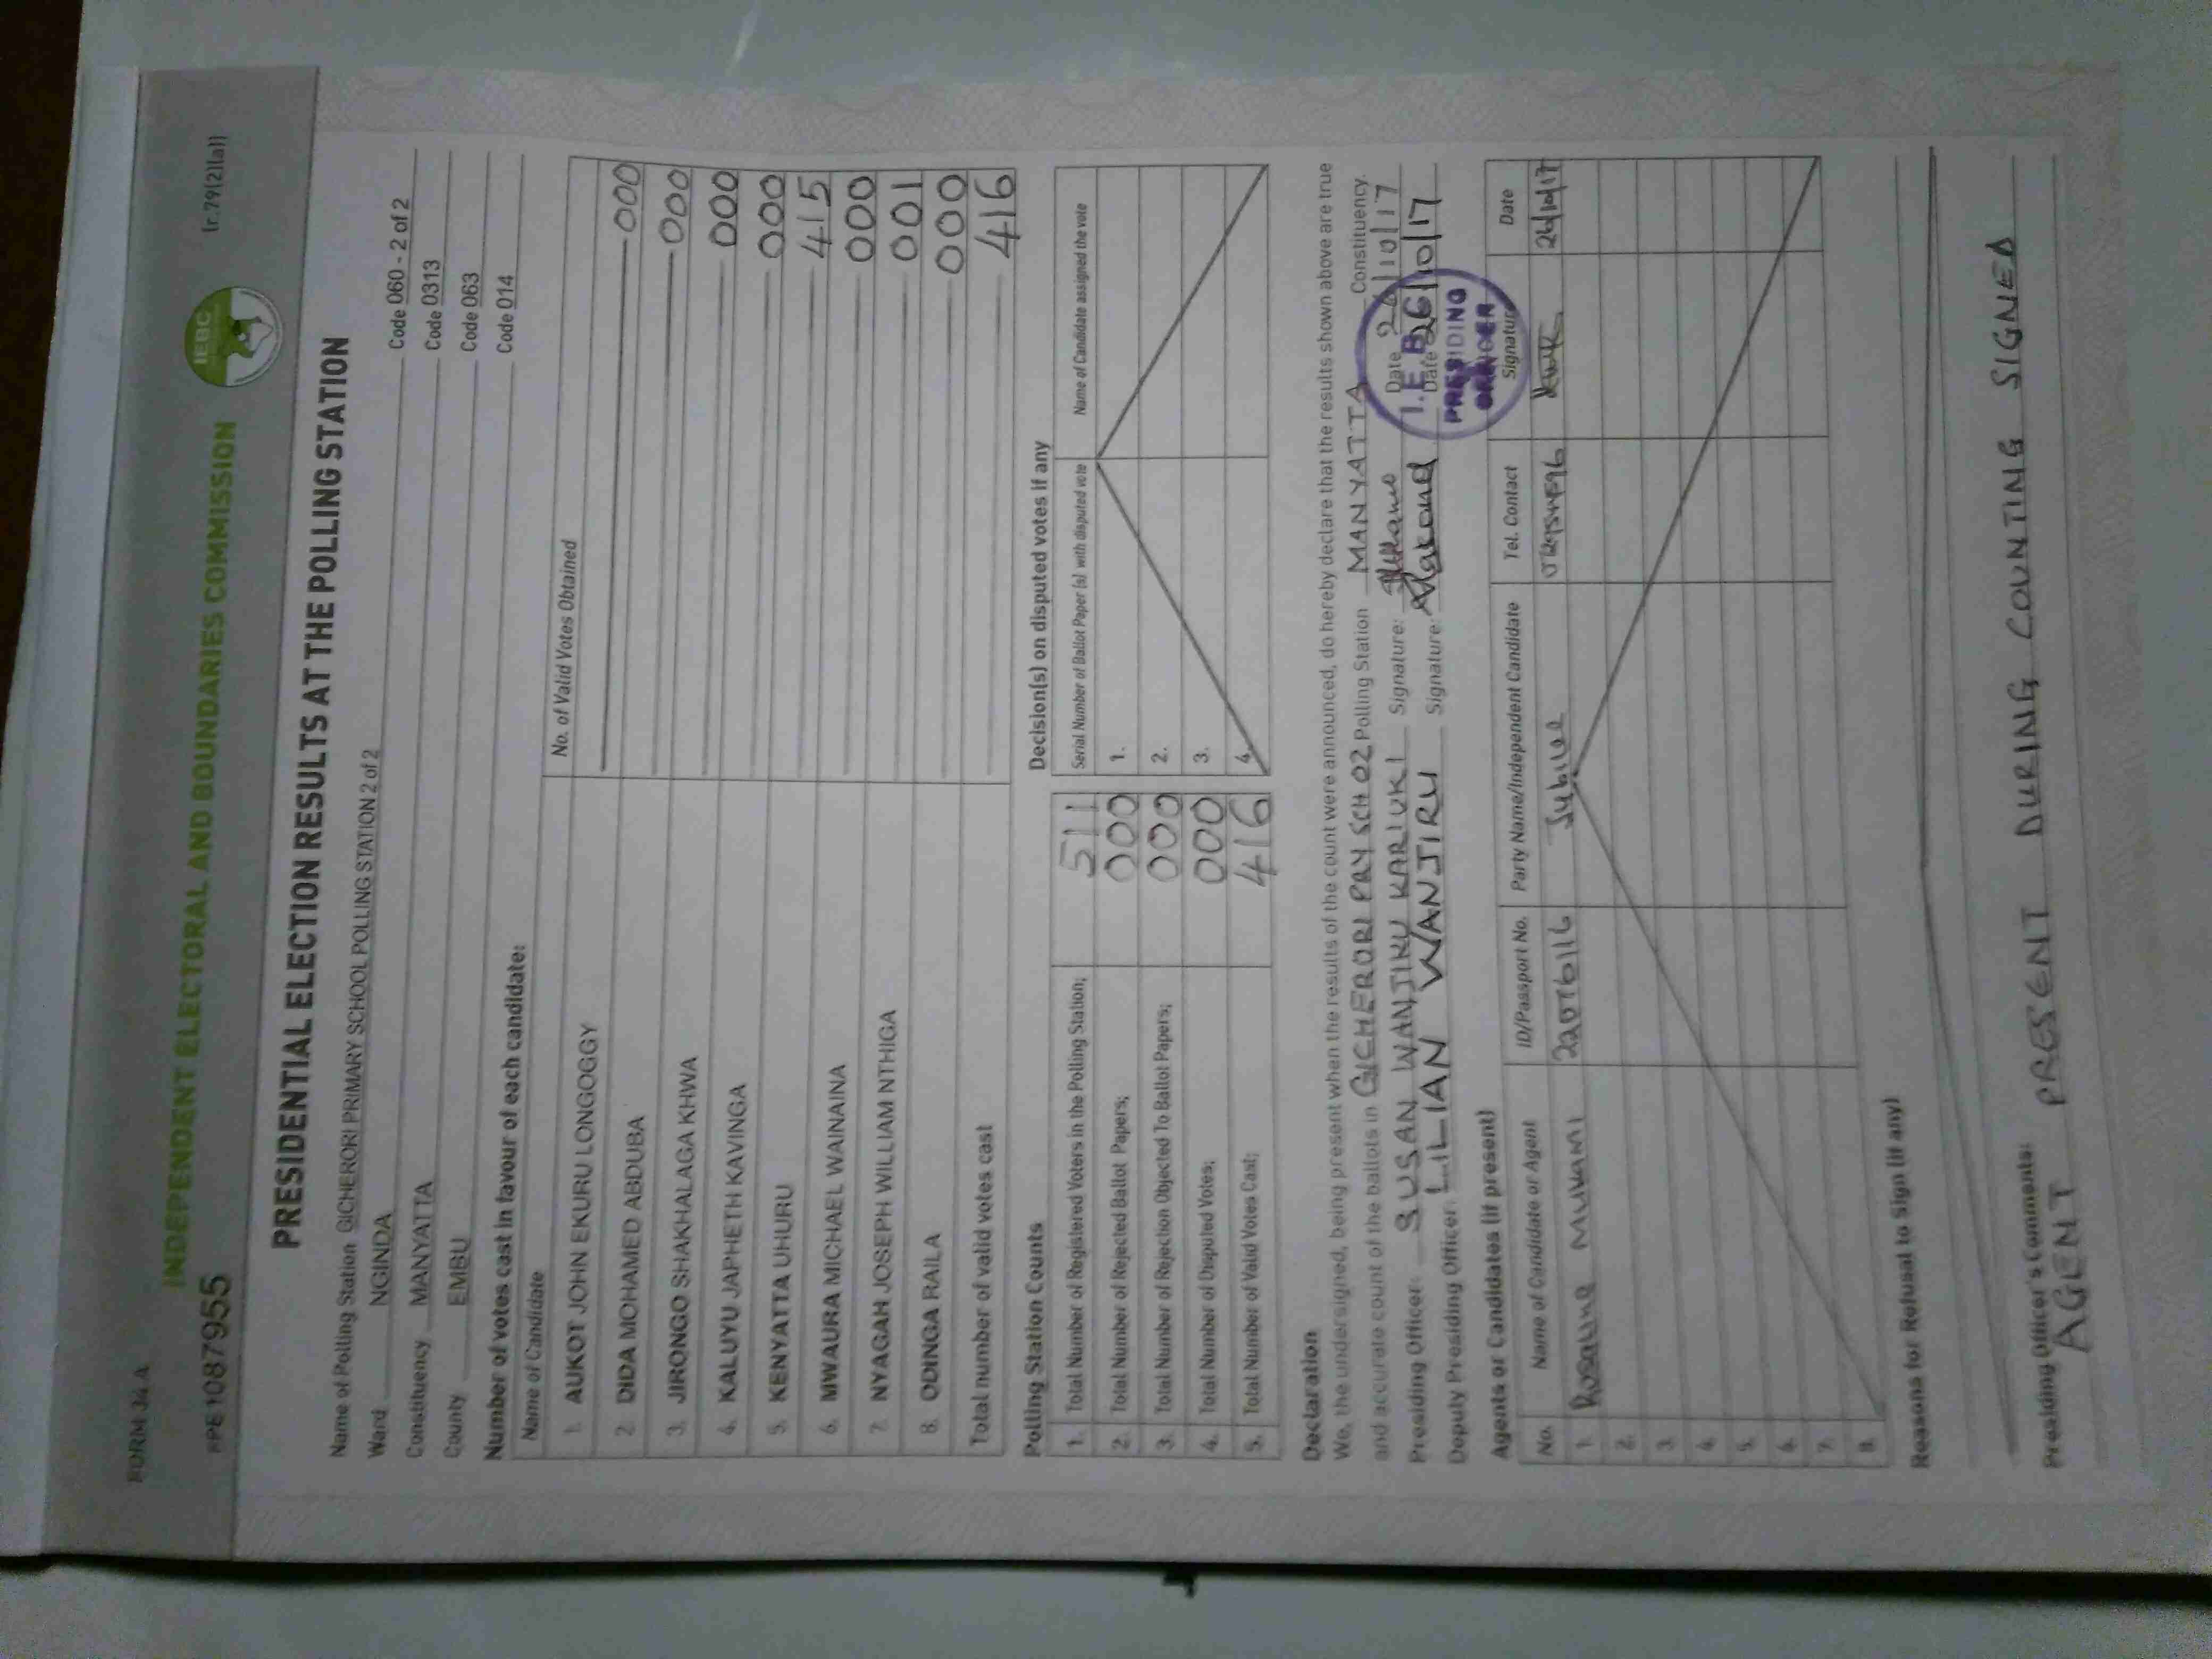 FORM 34 A
INDEPENDENT ELECTORAL AND BOUNDARIES COMMISSION
IEBC
(r.79(2)(a))
PE 1087955
PRESIDENTIAL ELECTION RESULTS AT THE POLLING STATION
Name of Polling Station GICHERORI PRIMARY SCHOOL POLLING STATION 2 of 2 Code 060 - 2 of 2
Ward NGINDA Code 0313
Constituency MANYATTA Code 063
County EMBU Code 014
Number of votes cast in favour of each candidate:
Name of Candidate No. of Valid Votes Obtained
1. AUKOT JOHN EKURU LONGOGGY 000
2. DIDA MOHAMED ABDUBA 000
3. JIRONGO SHAKHALAGA KHWA 000
4. KALUYU JAPHETH KAVINGA 000
5. KENYATTA UHURU 415
6. MWAURA MICHAEL WAINAINA 000
7. NYAGAH JOSEPH WILLIAM NTHIGA 001
8. ODINGA RAILA 000
Total number of valid votes cast 416
Polling Station Counts
1. Total Number of Registered Voters in the Polling Station; 511
2. Total Number of Rejected Ballot Papers; 000
3. Total Number of Rejection Objected To Ballot Papers; 000
4. Total Number of Disputed Votes; 000
5. Total Number of Valid Votes Cast; 416
Decision(s) on disputed votes if any
Serial Number of Ballot Paper (s) with disputed vote Name of Candidate assigned the vote
1.
2.
3.
4.
Declaration
We, the undersigned, being present when the results of the count were announced, do hereby declare that the results shown above are true
and accurate count of the ballots in GICHERORI PRY SCH 02 Polling Station MANYATTA Constituency.
Presiding Officer: SUSAN WANJIKU KARIUKI Signature: Date 26/10/17
Deputy Presiding Officer: LILIAN WANJIRU Signature: Date 26/10/17
I.E.B.
PRESIDING
Agents or Candidates (if present)
No. Name of Candidate or Agent ID/Passport No. Party Name/Independent Candidate Tel. Contact Signature Date
1. Jubilee 26/10/17
2.
3.
4.
5.
6.
7.
8.
Reasons for Refusal to Sign (if any)
Presiding Officer's Comments: PRESENT DURING COUNTING SIGNED
AGENT